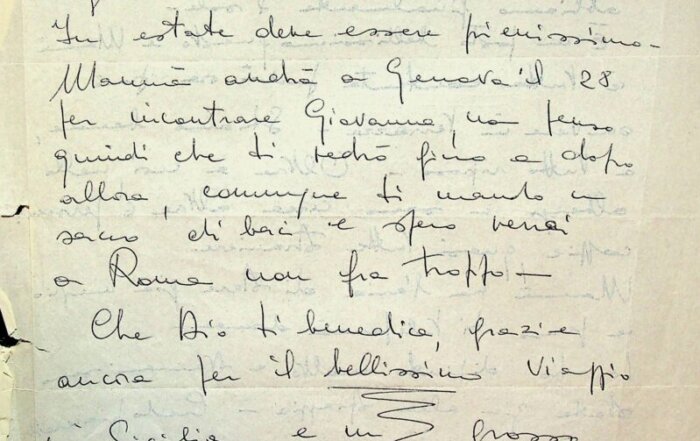 In estate deve essere pienissimo -
Mammà andrà a Genova il 28
per incontrare Giovanna, non penso
quindi che ti vedrà fino a dopo
allora, comunque ti mando un
sacco di baci e spero verrai
a Roma non fra troppo -
Che Dio ti benedica, grazie
ancora per il bellissimo viaggio
in Sicilia e un grosso